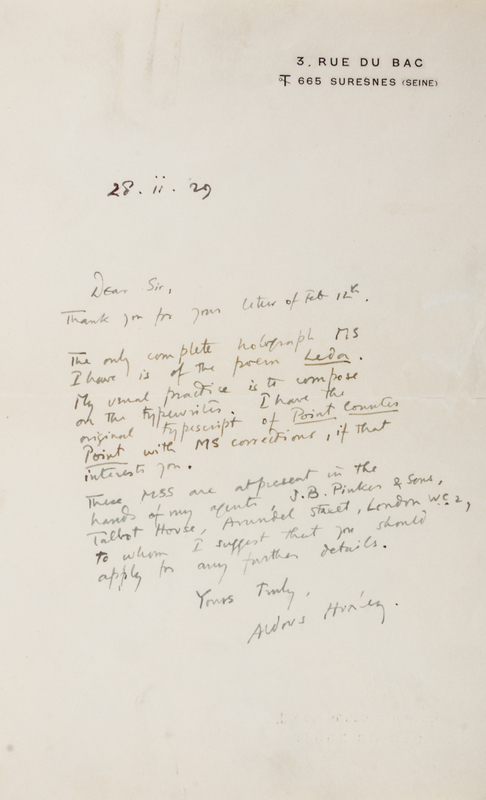 3. RUE DU BAC
T. 665 SURESNES (SEINE)
28. ii. 29
Dear Sir,
Thank you for your letter of Feb 12th.
The only complete holograph MS
I have is of the poem Leda.
My usual practice is to compose
on the typewriter. I have the
original typescript of Point Counter
Point with MS corrections, if that
interests you.
These MSS are at present in the
hands of my agents, J.B. Pinker & Sons,
Talbot House, Arundel Street, London W.C.2,
to whom I suggest that you should
apply for any further details.
Yours truly,
Aldous Huxley.